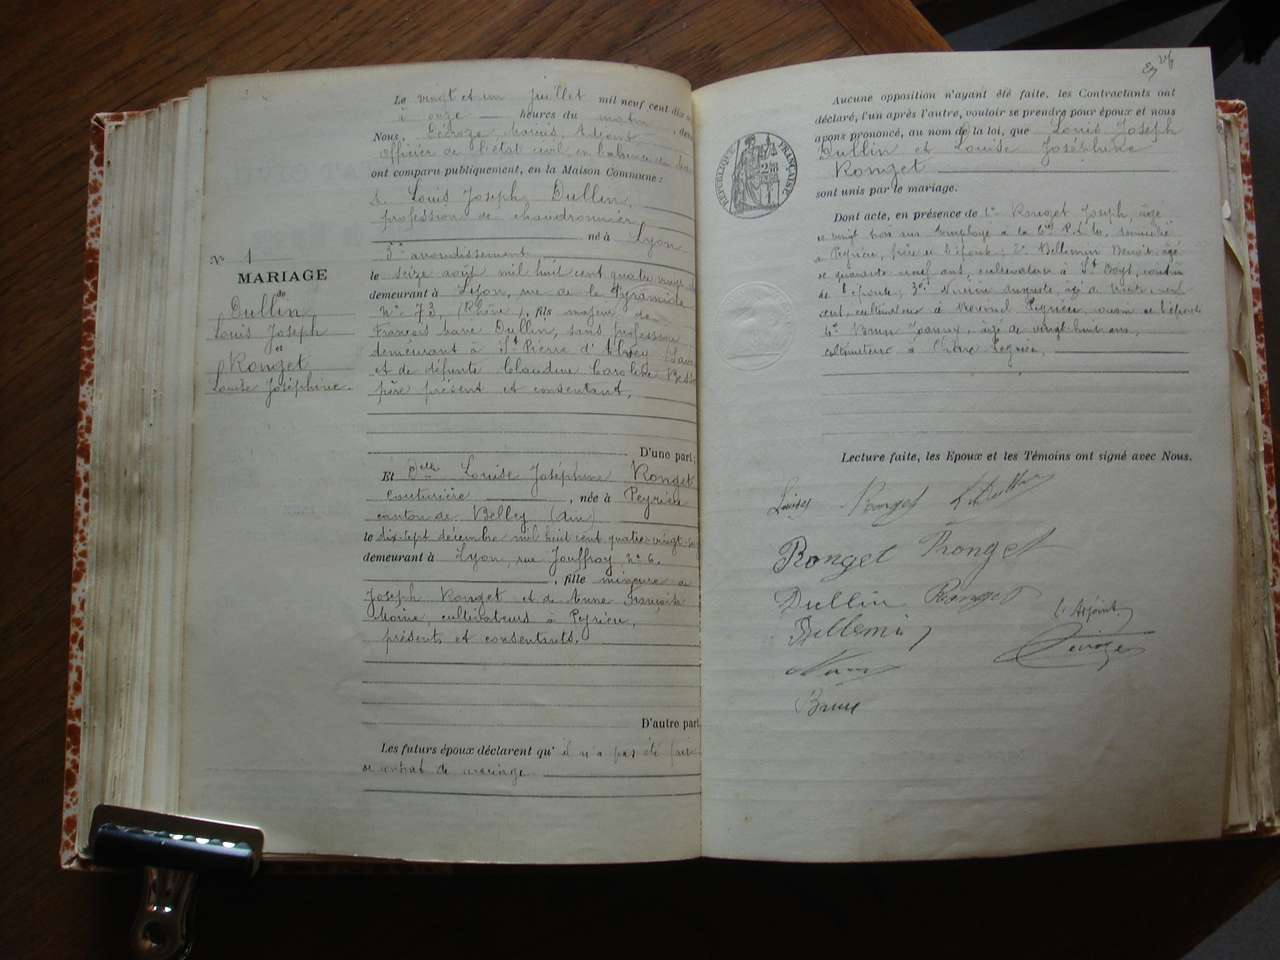 Le vingt et un juillet mil neuf cent dix
à onze heures du matin
Nous, Marius, Adjoint
officier de l'état civil en l'absence du
ont comparu publiquement, en la Maison Commune :
Louis Joseph Dullin,
profession de chaudronnier
né à Lyon
arrondissement
le seize août mil huit cent quatre vingt
demeurant à Lyon, rue de la Pyramide
N° 73, (Rhône), fils majeur de
François Dullin, sans profession
demeurant à St Pierre d'Albigny
et de défunte Claudine Caroline
père présent et consentant,
D'une part;
N° 1
MARIAGE
de
Dullin
Louis Joseph
et
Ronget
Louise Joséphine
Et Delle Louise Joséphine Ronget
Couturière, née à Peyrieu
canton de Belley (Ain)
le dix-sept décembre mil huit cent quatre-vingt
demeurant à Lyon, rue Jouffroy, N° 6.
, fille mineure de
Joseph Ronget et de Anne Françoise
Moine, cultivateurs à Peyrieu,
présents et consentants.
D'autre part
Les futurs époux déclarent qu'il n'a pas été fait
de contrat de mariage.
RÉPUBLIQUE FRANÇAISE
Aucune opposition n'ayant été faite, les Contractants ont
déclaré, l'un après l'autre, vouloir se prendre pour époux et nous
avons prononcé, au nom de la loi, que Louis Joseph
Dullin et Louise Joséphine
Ronget
sont unis par le mariage.
Dont acte, en présence de 1° Ronget Joseph, âgé
de vingt trois ans employé à la Cie P.L.M. domicilié
à Peyrieu, frère de l'épouse; 2° Bellemin Benoit, âgé
de quarante neuf ans, cultivateur à St Bois, cousin
de l'épouse; 3° Auguste, âgé de trente
ans, cultivateur à Peyrieu, cousin de l'épouse
4° Brun Joanny, âgé de vingt huit ans,
cultivateur à Peyrieu,
Lecture faite, les Epoux et les Témoins ont signé avec Nous.
Louise Ronget L Dullin
Ronget Ronget
Dullin Ronget
Bellemin
L'Adjoint
Brun